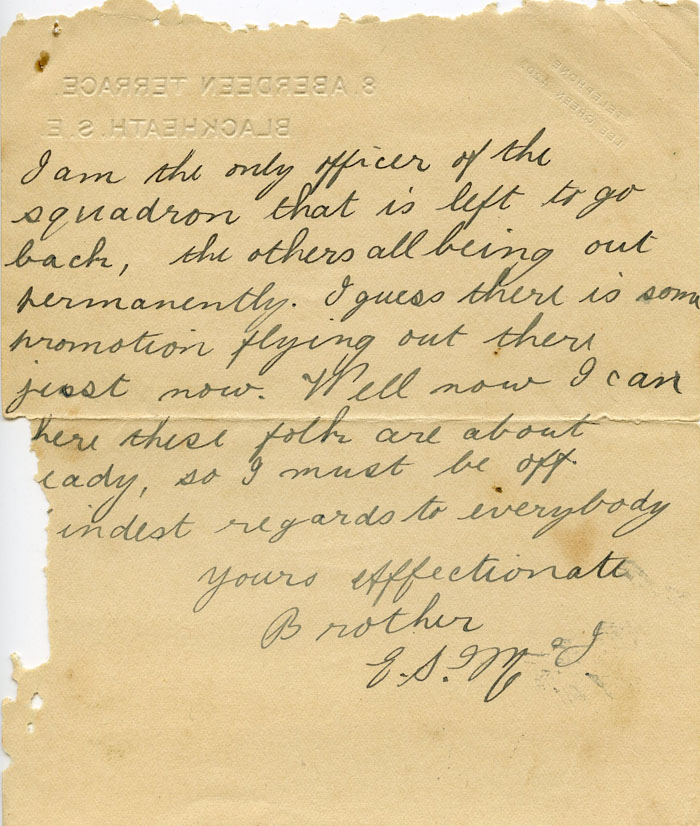 8. ABERDEEN TERRACE.
BLACKHEATH. S.E.
TELEPHONE
LEE GREEN
I am the only officer of the
squadron that is left to go
back, the others all being out
permanently. I guess there is some
promotion flying out there
jusst now. Well now I can
here these folk are about
eady, so I must be off.
indest regards to everybody
Yours Affectionate
Brother
E. S.